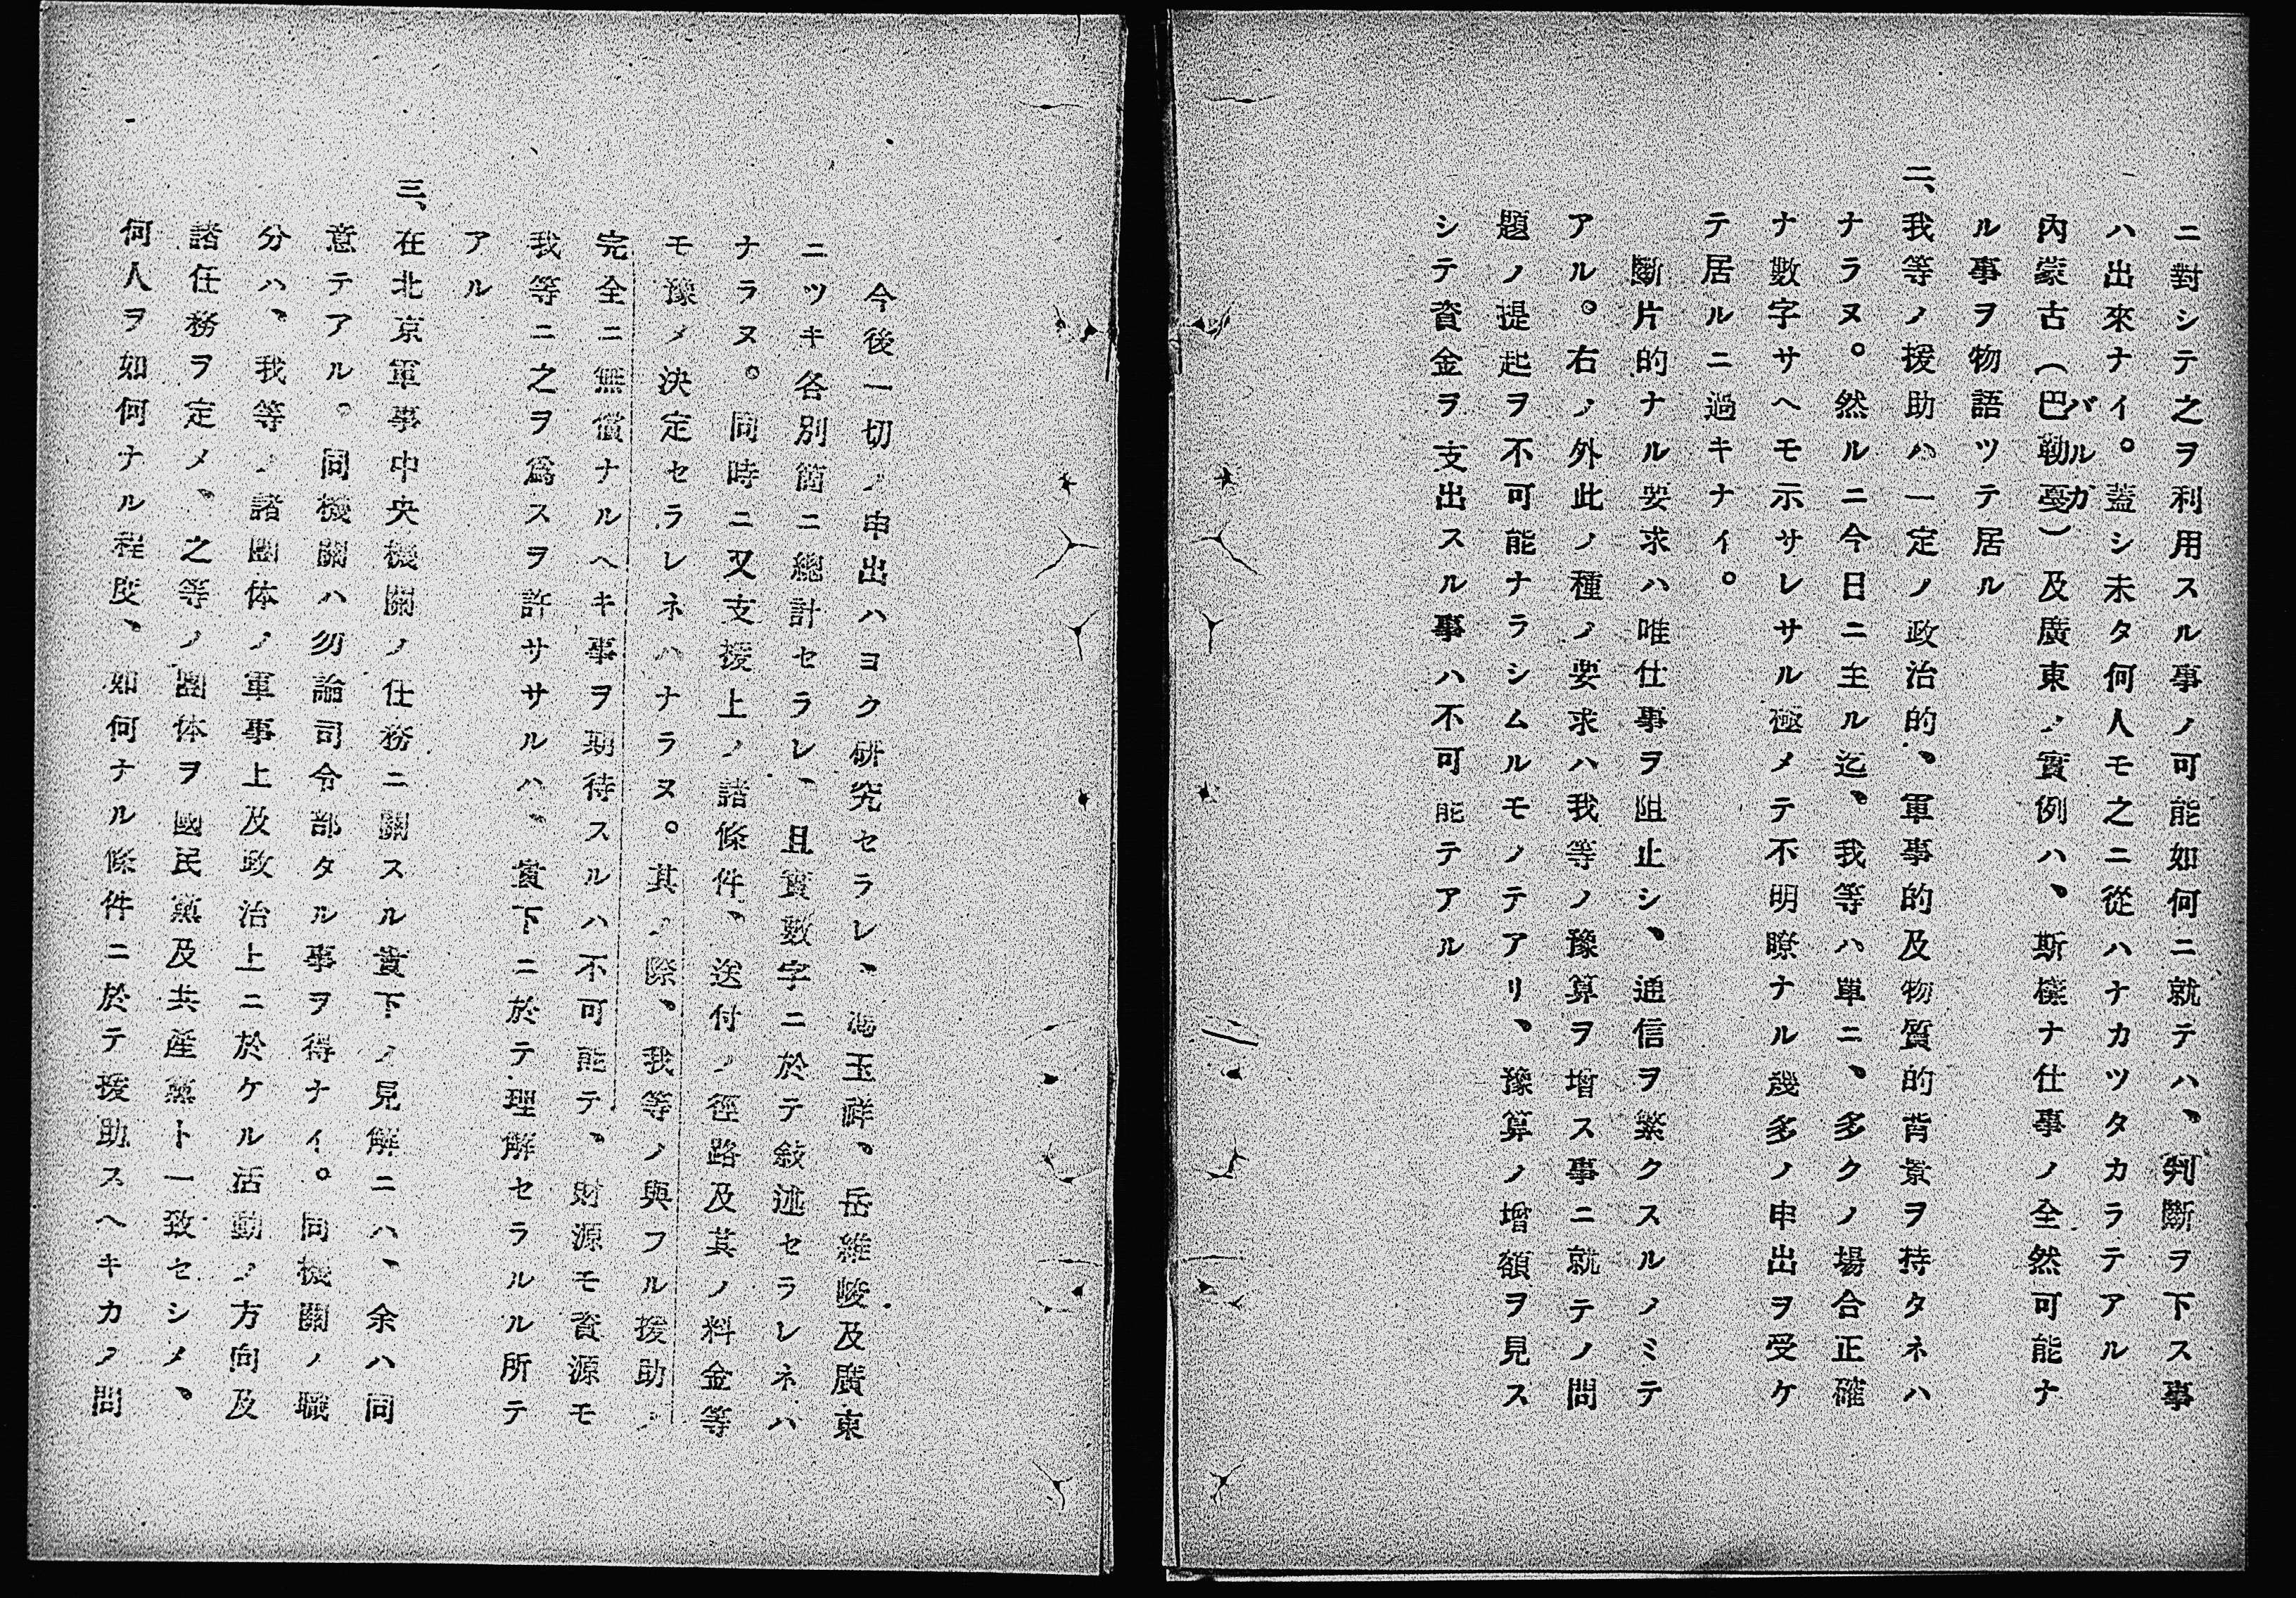 ニ對シテ之ヲ利用スル事ノ可能如何ニ就テハ、判斷ヲ下ス事
ハ出來ナイ。蓋シ未タ何人モ之ニ從ハナカツタカラテアル
バルガ
內蒙古（巴勒戞）及廣東ノ實例ハ、斯樣ナ仕事ノ全然可能ナ
ル事ヲ物語ツテ居ル
二、我等ノ援助ハ一定ノ政治的、軍事的及物質的背景ヲ持タネハ
ナラヌ。然ルニ今日ニ主ル迄、我等ハ單ニ、多クノ場合正確
ナ數字サヘモ示サレサル極メテ不明瞭ナル幾多ノ申出ヲ受ケ
テ居ルニ過キナイ。
斷片的ナル要求ハ唯仕事ヲ阻止シ、通信ヲ繁クスルノミテ
アル。右ノ外此ノ種ノ要求ハ我等ノ豫算ヲ增ス事ニ就テノ問
題ノ提起ヲ不可能ナラシムルモノテアリ、豫算ノ增額ヲ見ス
シテ資金ヲ支出スル事ハ不可能テアル
今後一切ノ申出ハヨク硏究セラレ、馮玉祥、岳維峻及廣東
ニツキ各別箇ニ總計セラレ、且實數字ニ於テ敍述セラレネハ
ナラヌ。同時ニ又支援上ノ諸條件、送付ノ徑路及其ノ料金等
モ豫メ決定セラレネハナラヌ。其ノ際、我等ノ與フル援助ノ
完全ニ無償ナルヘキ事ヲ期待スルハ不可能テ、財源モ資源モ
我等ニ之ヲ爲スヲ許ササルハ、貴下ニ於テ理解セラルル所テ
アル
三、在北京軍事中央機關ノ仕務ニ關スル貴下ノ見解ニハ、余ハ同
意テアル。同機關ハ勿論司令部タル事ヲ得ナイ。同機關ノ職
分ハ、我等ノ諸團体ノ軍事上及政治上ニ於ケル活動ノ方向及
諸任務ヲ定メ、之等ノ團体ヲ國民黨及共産黨ト一致セシメ、
何人ヲ如何ナル程度、如何ナル條件ニ於テ援助スヘキカノ問